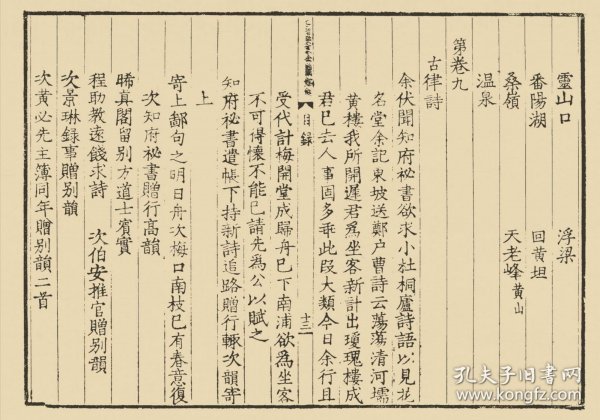 靈山口　浮梁
番陽湖　回黃坦
桑嶺　天老峰黃山
溫泉
第卷九
古律詩
余伏聞知府祕書欲求小杜桐廬詩語以見
名堂余記東坡送鄭户曹詩云蕩蕩清河壖
黃樓我所開遲君為坐客新計出瓊瑰樓成
君已去人事固多乖此段大類今日余行且
目錄
十三
受代計梅開堂成歸舟已下南浦欲為坐客
不可得懷不能已請先為公以賦之
知府祕書遣帳下持新詩追路贈行輙次韻寄
上
寄上鄙句之明日舟次梅口南枝已有春意復
次知府祕書贈行高韻
晞真閣留别方道士賓實
程助教遠餞求詩　次伯安推官贈别韻
次景琳録事贈别韻
次黃必先主簿同年贈别韻二首
孔夫子旧书网
www.kongfz.com